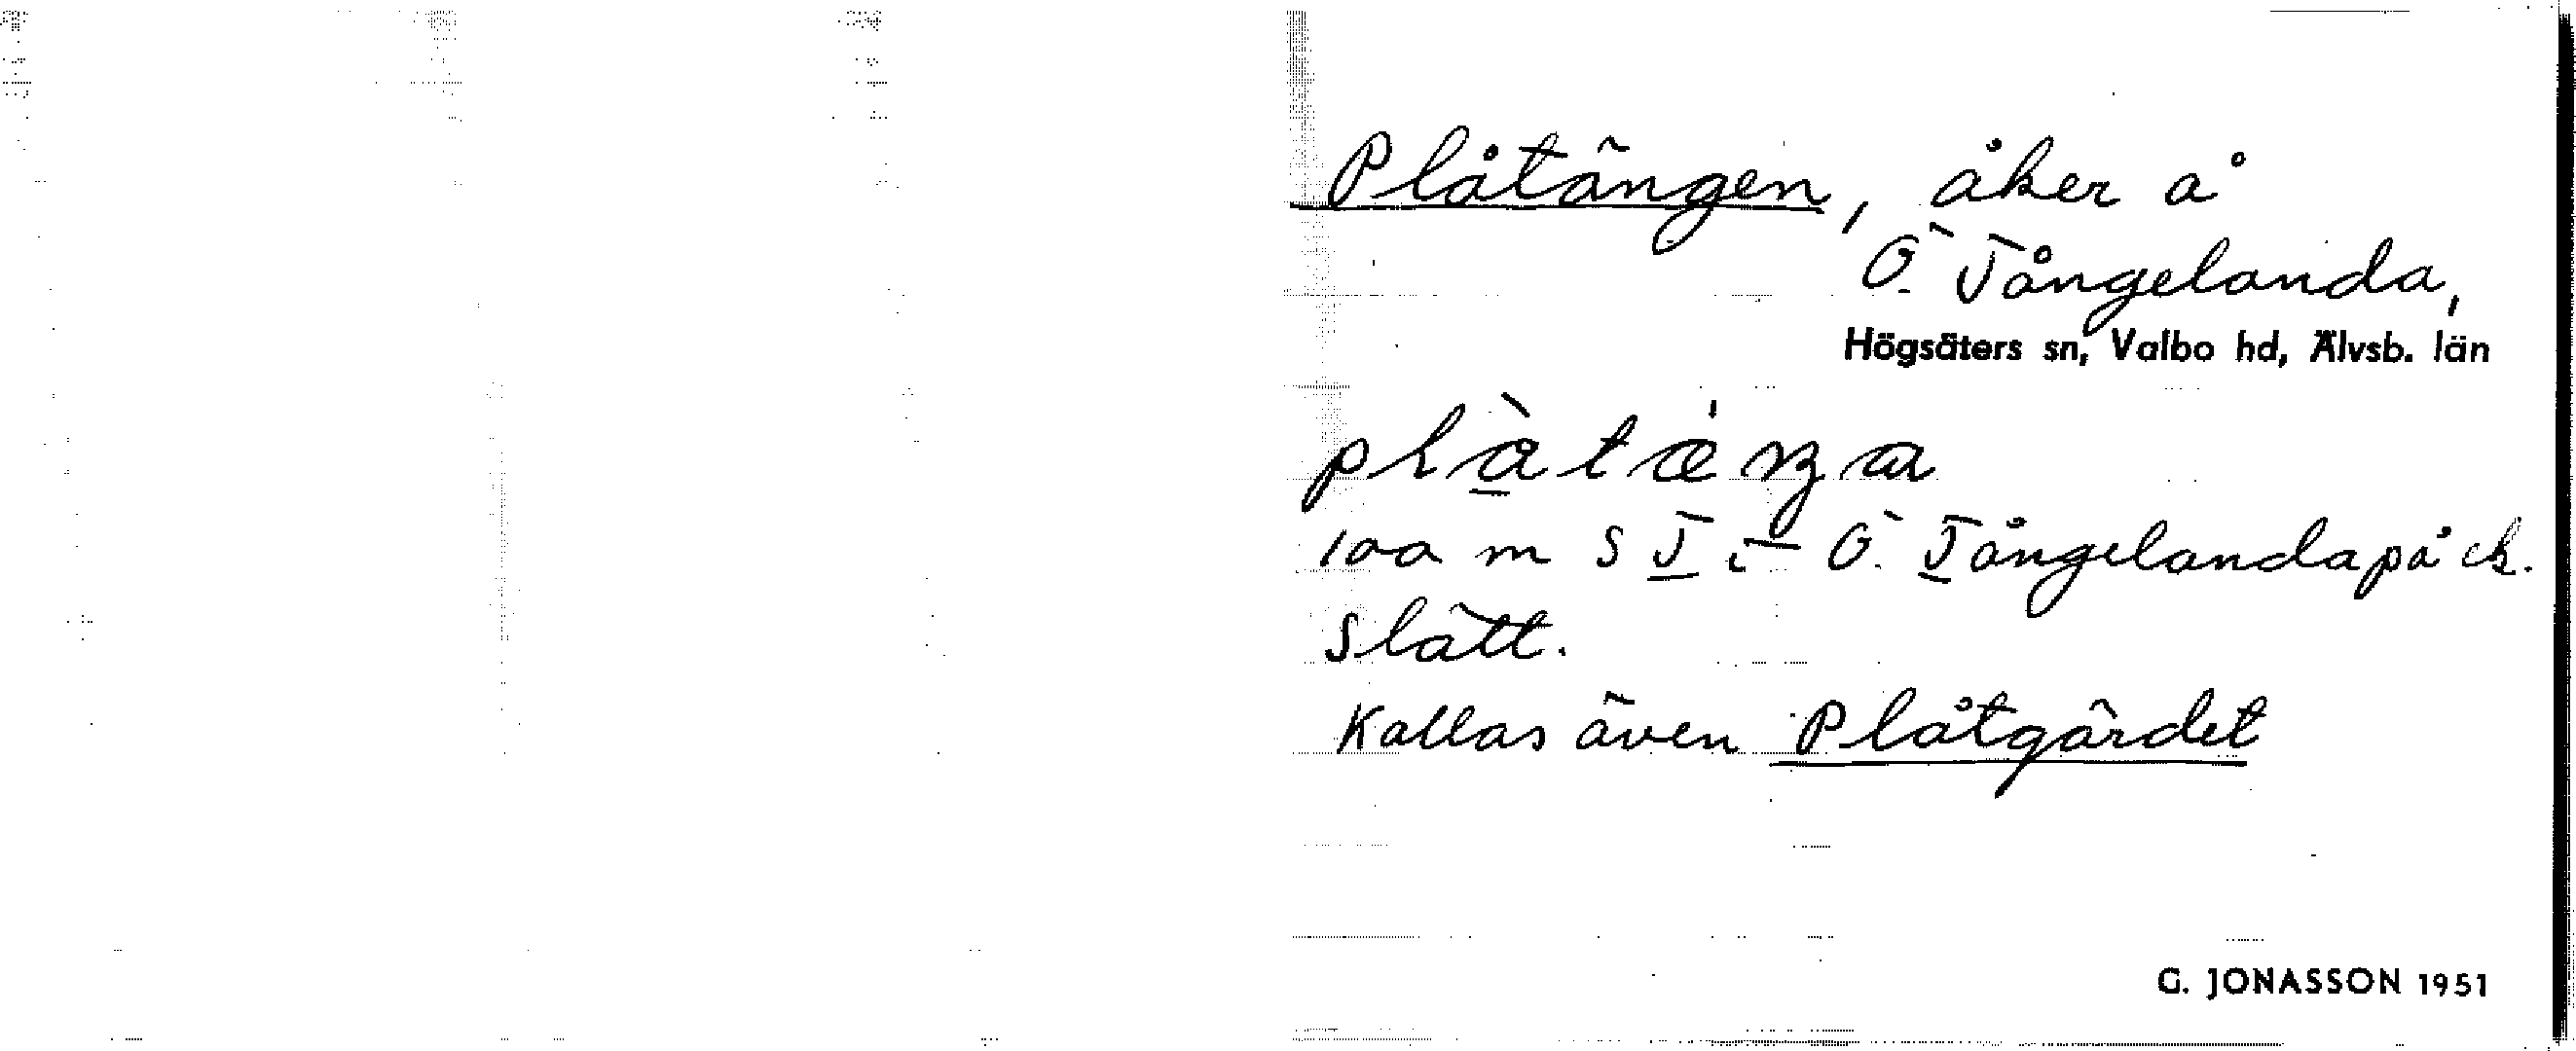 Plåtängen, åker å
Ö. Tångelanda,
Högsäters sn, Valbo hd, Älvsb. län
100 m S I i Ö. Tångelanda på ek.
Slätt.
Kallas även Plåtgärdet
G. JONASSON 1951